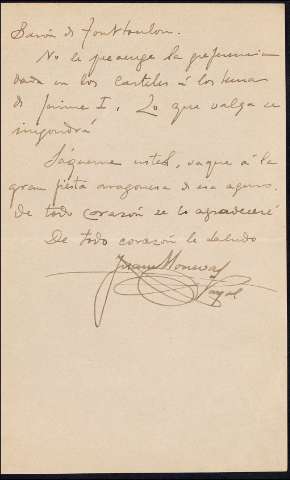 Barón de
No le preocupe la preferencia
dada en los carteles á los temas
de Jaime I. Lo que valga se
impondrá
Sáqueme usted, vaque á la
gran fiesta aragonesa de ese
De todo corazón se lo agradeceré
De todo corazón le saludo